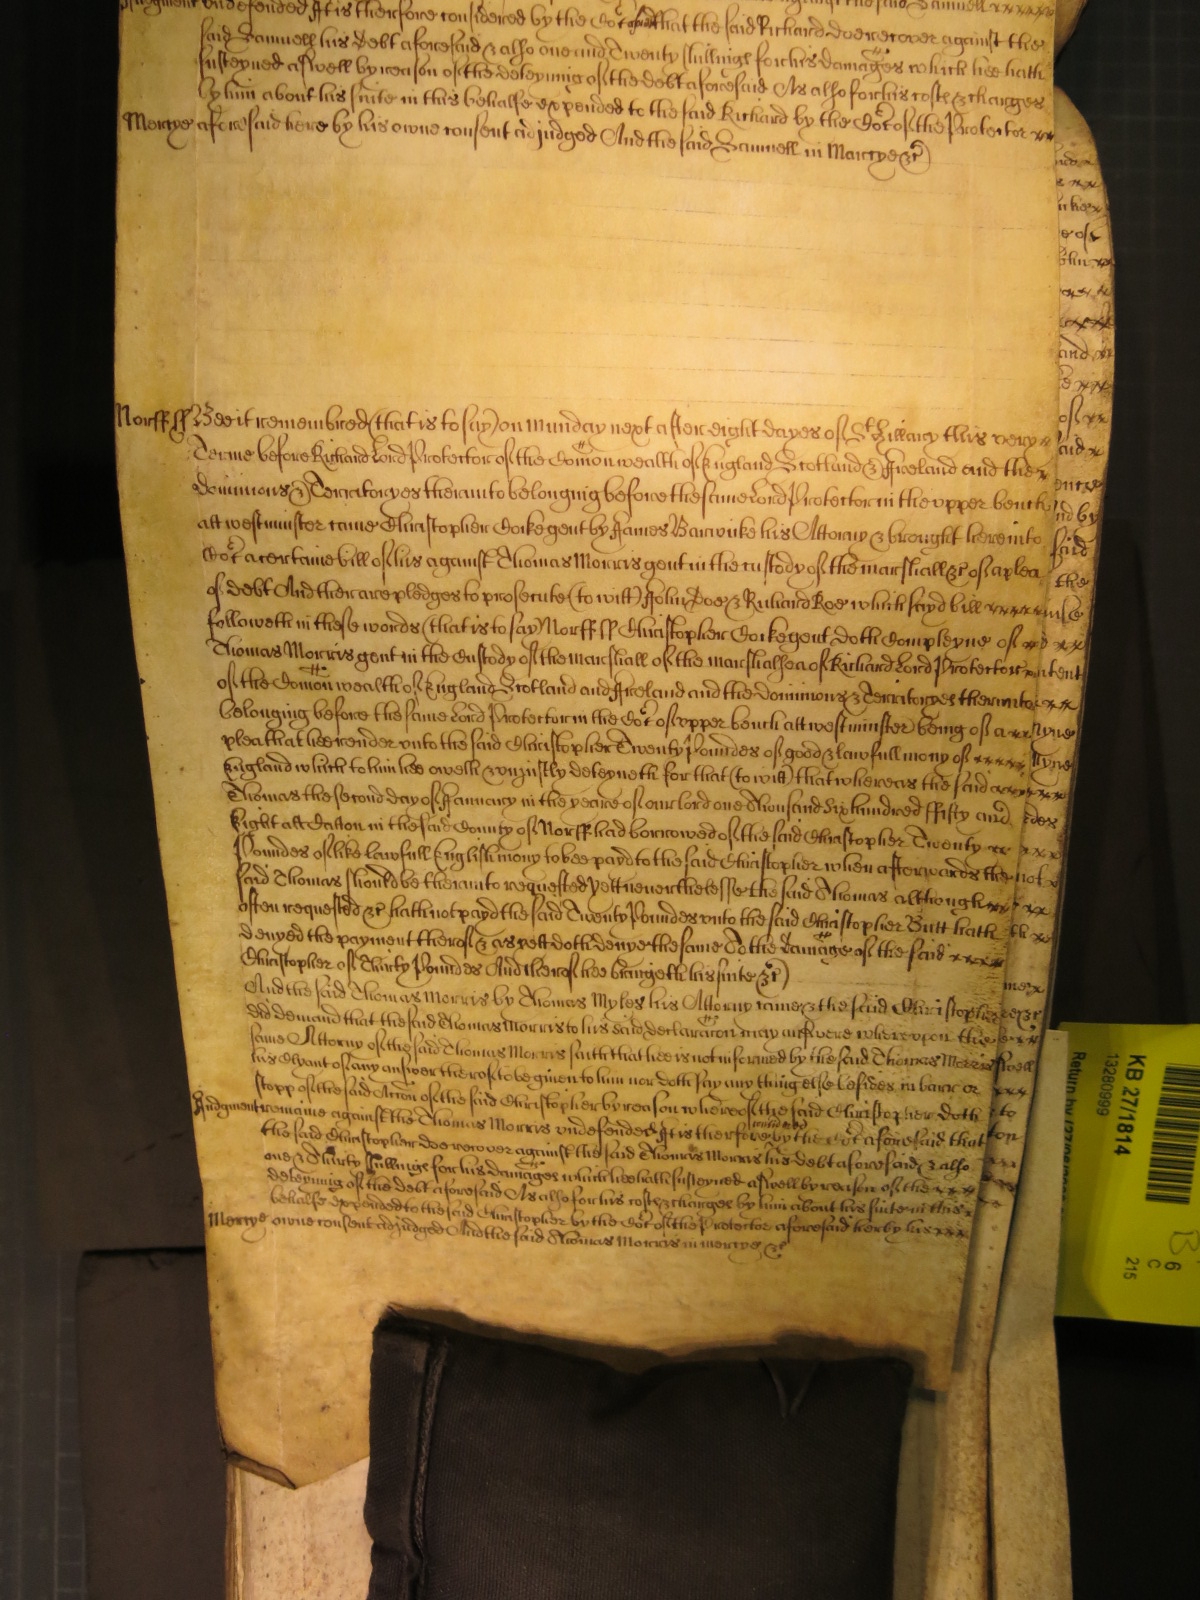 Judgment undefended It is therefore considered by the Cort that the said Richard doe recover against the
said Samuell his Debt aforesaid & also one and Twenty shillings for his damages which hee hath
susteyned aswell by reason of the deteyning of the debt aforesaid As also for his costs & charges
by him about his suite in this behalfe expended to the said Richard by the Cort of the Protector
Mercye aforesaid here by his owne consent adjudged And the said Samuell in Mercye &c)
Norff ss Bee it remembred (that is to say) on Munday next after eight dayes of St Hillary this very
Terme before Richard Lord Protector of the Comon wealth of England Scotland & Ireland and the
dominions & Territoryes thereunto belonging before the same Lord Protector in the upper bench
att westminster came Christopher Cooke gent by James Barwicke his Attorny & brought here into
Cort a certaine bill of his against Thomas Morris gent in the custody of the marshall &c of a plea
of debt And there are pledges to prosecute (to witt) John Doe & Richard Roe which sayd bill
followeth in these words (that is to say) Norff ss Christopher Cooke gent doth Compleyne of
Thomas Morris gent in the Custody of the marshall of the marshalsea of Richard Lord Protector
of the Comon wealth of England Scotland and Ireland and the dominions & Territoryes thereunto
belonging before the same Lord Protector in the Cort of upper bench att westminster) being of a
plea that hee render unto the said Christopher Twenty Poundes of good & lawfull mony of
England which to him hee oweth & unjustly deteyneth for that (to witt) that whereas the said
Thomas the second day of January in the yeare of our lord one Thousand Six hundred ffifty and
Eight att in the said County of Norff had borrowed of the said Christopher Twenty
Poundes of like lawfull English mony to bee payd to the said Christopher when afterwards the
said Thomas should be thereunto requested Yett neverthelesse the said Thomas although
often requested &c hath not payd the said Twenty Poundes unto the said Christopher Butt hath
denyed the payment therof & as yett doth denye the same To the damage of the said
Christopher of Thirty Poundes And therof hee bringeth his suite &c)
And the said Thomas Morris by Thomas Myles his Attorny came & the said Christopher
did demand that the said Thomas Morris to his said declaracon may answere wherupon the
same Attorny of the said Thomas Morris saith that hee is not informed by the said Thomas Morris
his Clyant of any answer therof to be given to him nor doth say any thing else besides in barr or
stopp of the said Accon of the said Christopher by reason whereof the said Christopher doth
Judgment remaine against the Thomas Morris undefended It is therfore considered by the Cort aforesaid that
the said Christopher doe recover against the said Thomas Morris his debt aforesaid & also
one & Thirty Shillings for his damages which hee hath susteyned aswell by reason of the
deteyning of the debt aforesaid As also for his costs & charges by him about his suite in this
behalfe expended to the said Christopher by the Cort of the Protector aforesaid here by his
Mercye owne consent adjudged And the said Thomas Morris in mercye &c
KB 27/1814
13280999
6
C
215